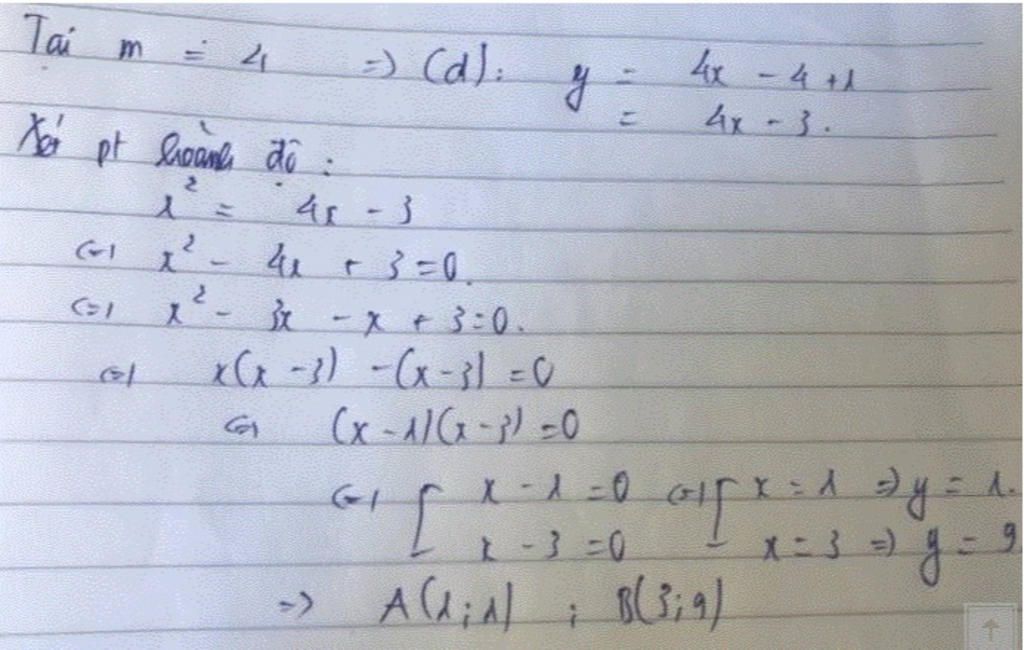 Tại m = 4 => (d): y = 4x - 4 + 1
= 4x - 3.
Xét pt hoành độ:
x² = 4x - 3
<=> x² - 4x + 3 = 0.
<=> x² - 3x - x + 3 = 0.
<=> x(x - 3) - (x - 3) = 0
<=> (x - 1)(x - 3) = 0
<=> [ x - 1 = 0 <=> [ x = 1 => y = 1.
x - 3 = 0 x = 3 => y = 9
=> A(1; 1) ; B(3; 9)